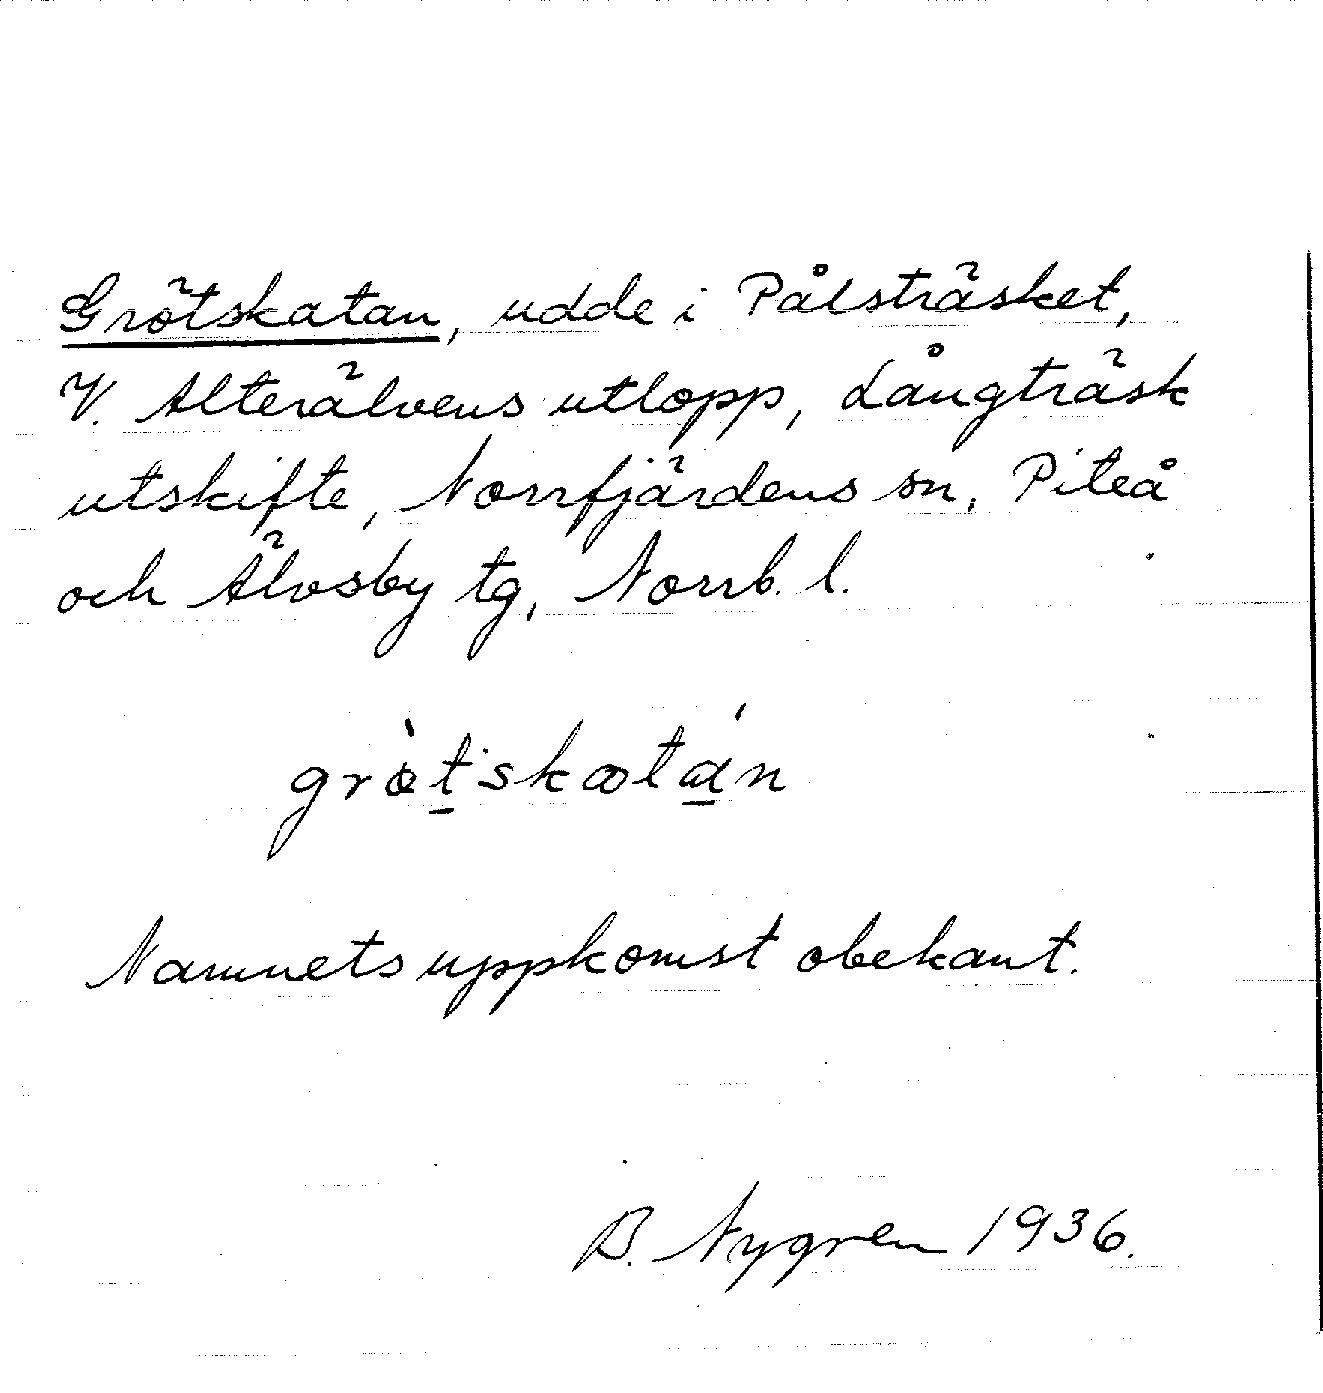 Grötskatan, udde i Pålsträsket,
V. Alterälvens utlopp, Långträsk
utskifte, Norrfjärdens sn, Piteå
och Älvsby tg, Norrb. l.
grɵ̀t̠skatá̠n
Namnets uppkomst obekant.
B. Nygren 1936.